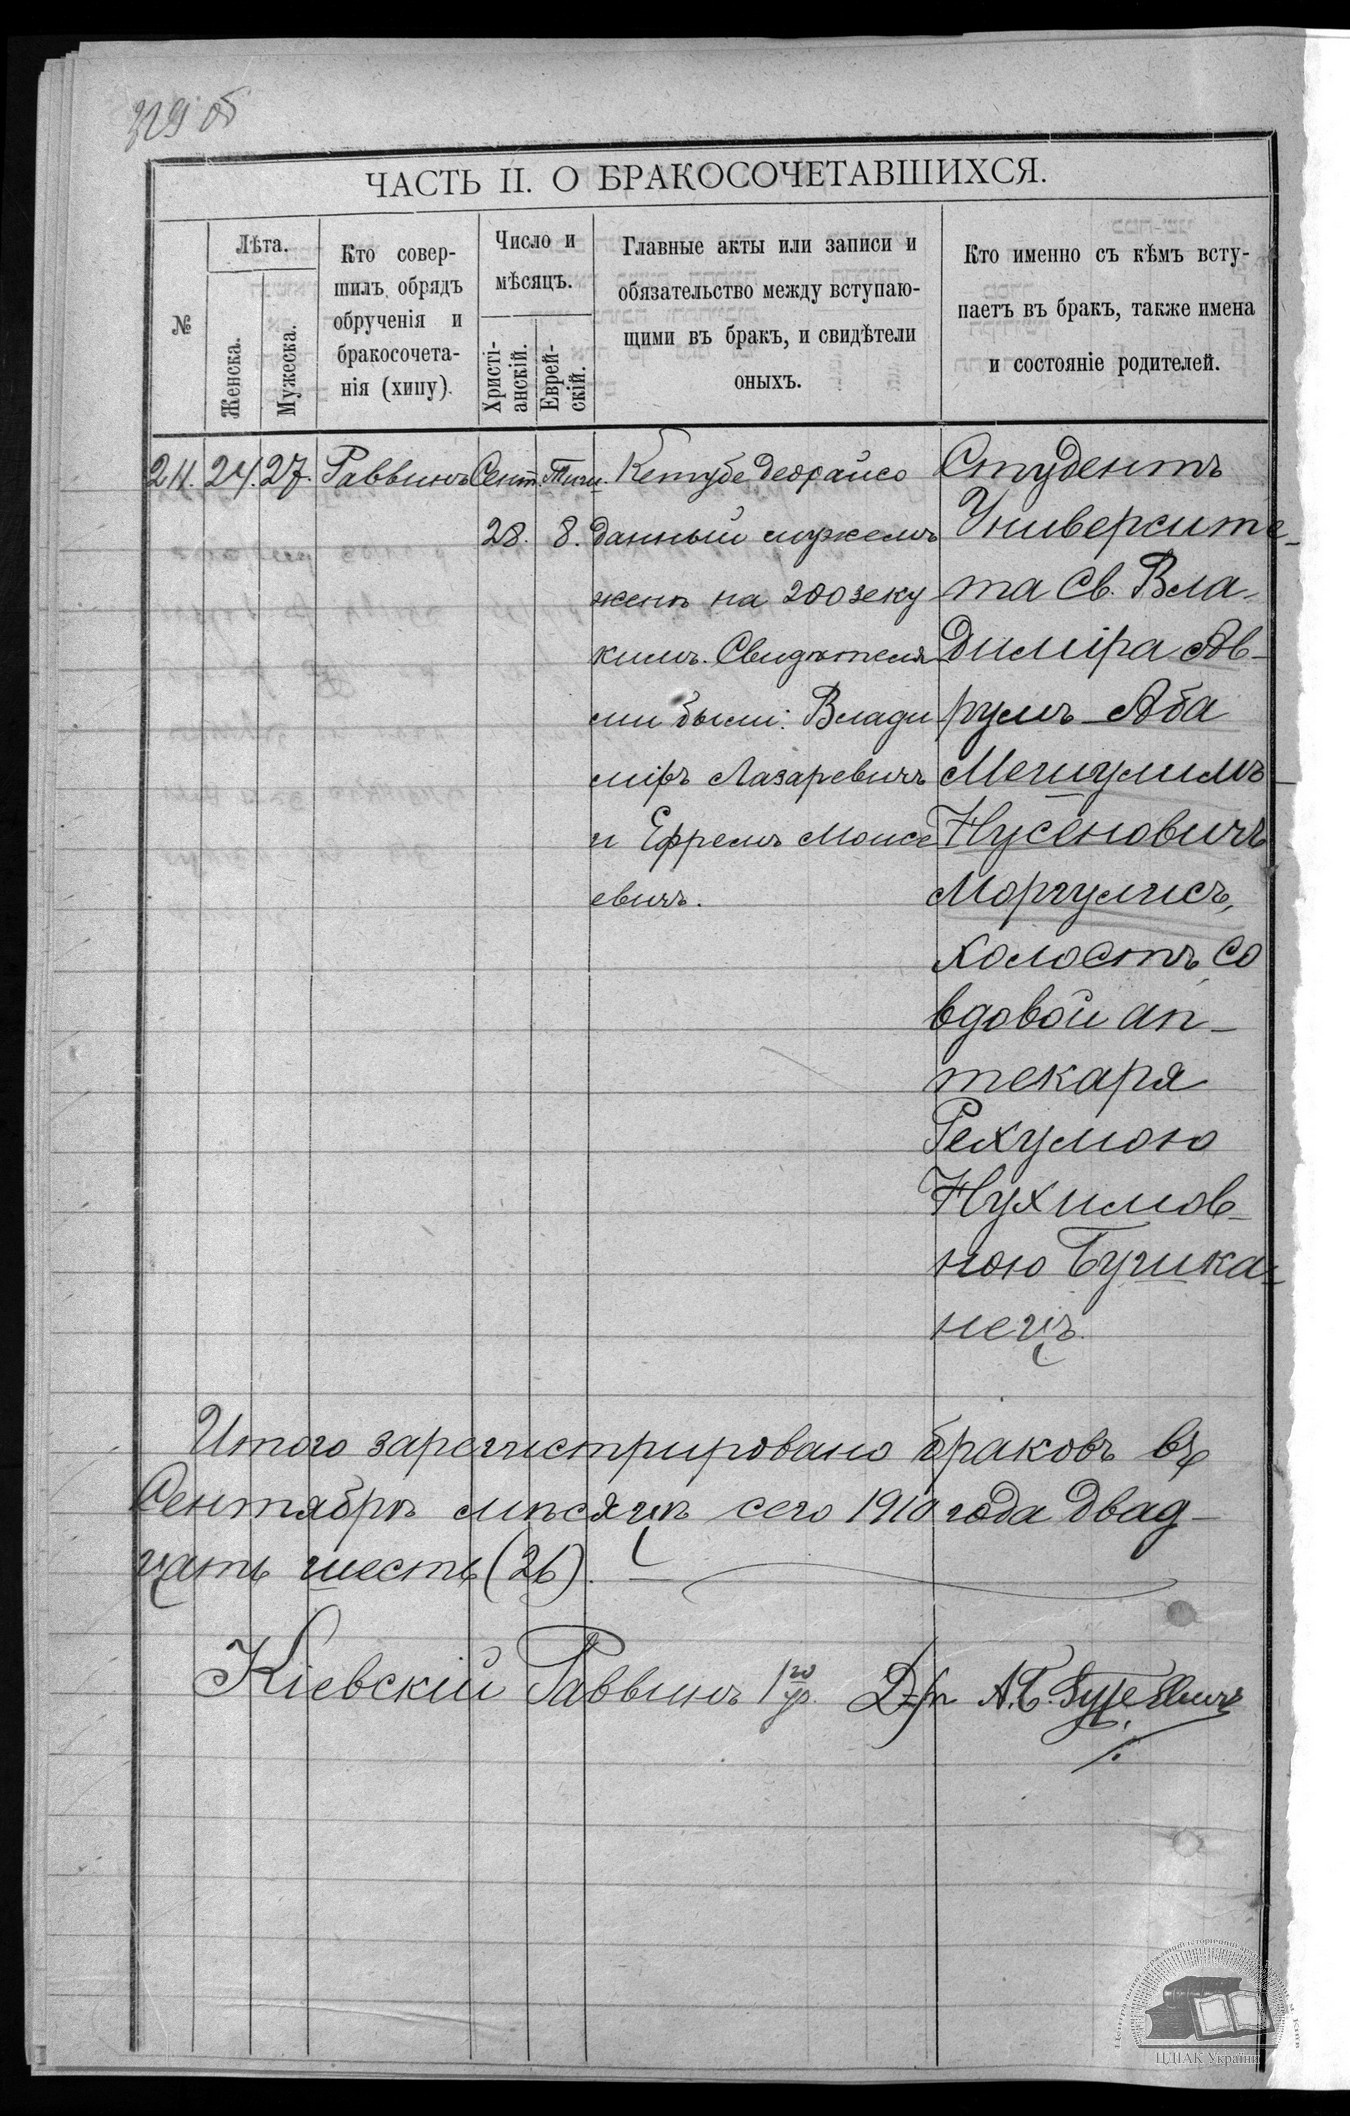 329 об
ЧАСТЬ II. О БРАКОСОЧЕТАВШИХСЯ.
№
Лѣта.
Женска.
Мужеска.
Кто совер-
шилъ обрядъ
обрученія и
бракосочета-
нія (хипу).
Число и
мѣсяцъ.
Христі-
анскій.
Еврей-
скій.
Главные акты или записи и
обязательство между вступаю-
щими въ бракъ, и свидѣтели
оныхъ.
Кто именно съ кѣмъ всту-
паетъ въ бракъ, также имена
и состояніе родителей.
24. 27. Раввинъ Сент. Тиш.
28. 8.
Кетубе деорайсо
данный мужемъ
женѣ на 200 зеку
кимъ. Свидѣтеля
ми были: Влади
міръ Лазаревичъ
и Ефремъ Моисе
евичъ.
Студентъ
Университе-
та Св. Вла-
диміра Ав-
румъ-Аба
Мешулимъ
Нусеновичъ
Моргулисъ,
холостъ, со
вдовой ап-
текаря
Рехумою
Нухимов-
ною Бушка-
нецъ.
Итого зарегистрировано браковъ въ
Сентябрѣ мѣсяцѣ сего 1910 года двад-
цать шесть (26).
Кіевскій Раввинъ
ЦДІАК України